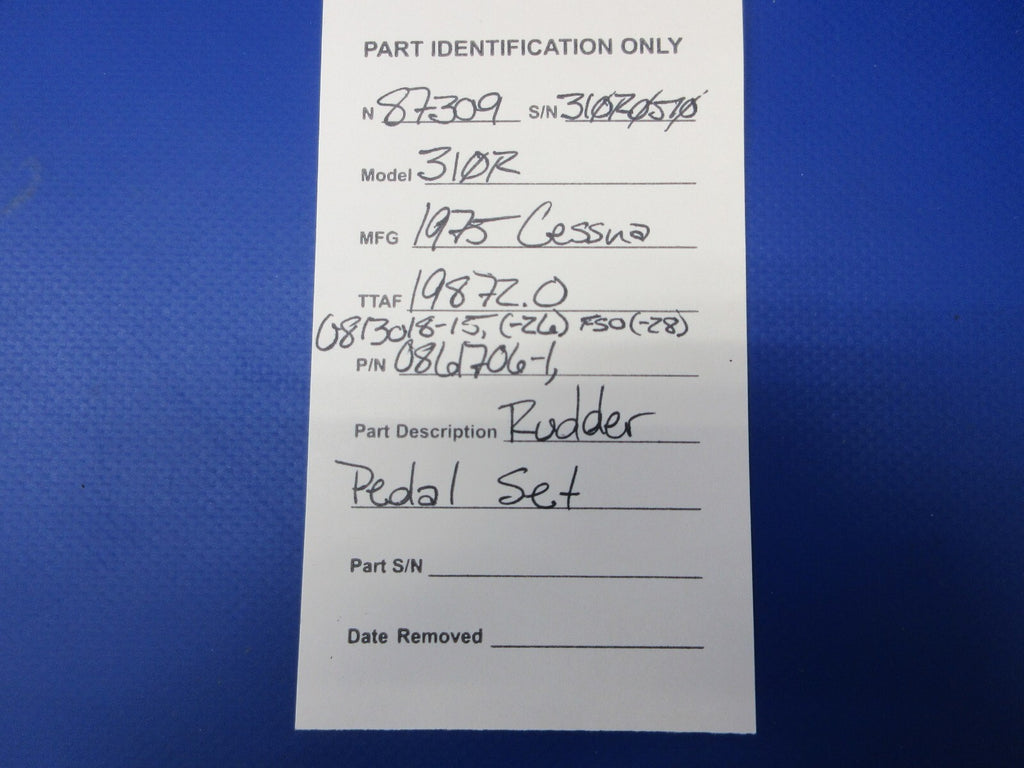 PART IDENTIFICATION ONLY
N 87309 S/N 310R0510
Model 310R
MFG 1975 Cessna
TTAF 19872.0
0813018-15, (-26) FSO (-28)
P/N 0861706-1,
Part Description Rudder
Pedal Set
Part S/N
Date Removed